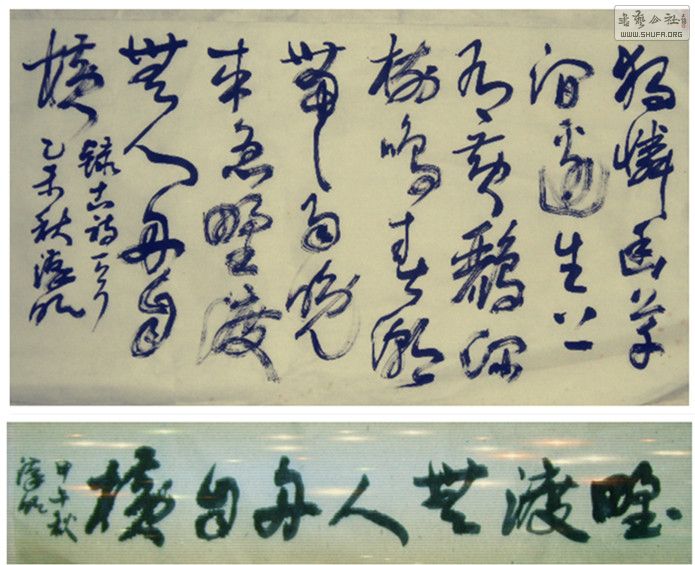 書藝公社
WWW.SHUFA.ORG
獨憐幽草
澗邊生上
有黄鸝深
樹鳴春潮
帶雨晚
来急野渡
無人舟自
橫
錄古詩
乙未秋
野渡無人舟自橫
甲午秋